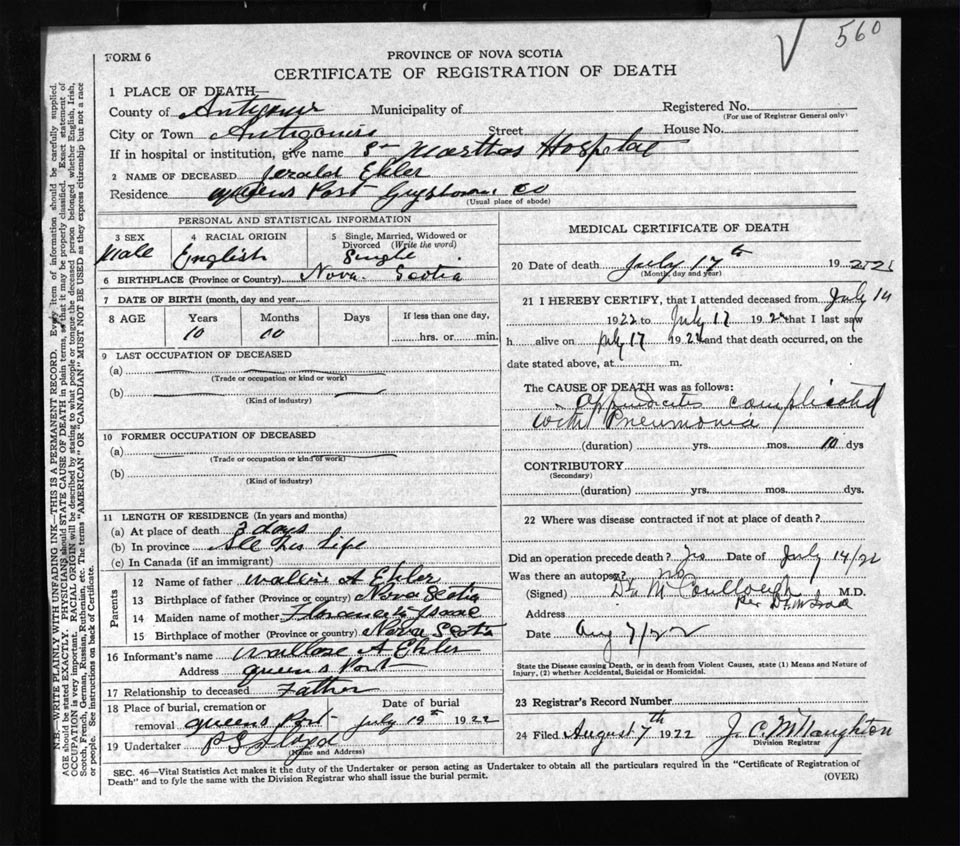 560
FORM 6
PROVINCE OF NOVA SCOTIA
CERTIFICATE OF REGISTRATION OF DEATH
1 PLACE OF DEATH—
County of Municipality of Registered No.
(For use of Registrar General only)
City or Town Street House No.
If in hospital or institution, give name St Marthas Hospital
2 NAME OF DECEASED Jerald Ehler
Residence Queens Port Guysboro Co
(Usual place of abode)
PERSONAL AND STATISTICAL INFORMATION
3 SEX Male
4 RACIAL ORIGIN English
5 Single, Married, Widowed or Divorced (Write the word) Single
6 BIRTHPLACE (Province or Country) Nova Scotia
7 DATE OF BIRTH (month, day and year)
8 AGE Years Months Days If less than one day,
10 10 hrs. or min.
9 LAST OCCUPATION OF DECEASED
(a)
(Trade or occupation or kind or work)
(b)
(Kind of industry)
10 FORMER OCCUPATION OF DECEASED
(a)
(Trade or occupation or kind of work)
(b)
(Kind of industry)
11 LENGTH OF RESIDENCE (In years and months)
(a) At place of death 3 days
(b) In province All his life
(c) In Canada (if an immigrant)
Parents
12 Name of father A Ehler
13 Birthplace of father (Province or country) Nova Scotia
14 Maiden name of mother
15 Birthplace of mother (Province or country) Nova Scotia
16 Informant's name Wallace A Ehler
Address Queens Port
17 Relationship to deceased Father
18 Place of burial, cremation or Date of burial
removal Queens Port July 19th 1922
19 Undertaker
(Name and Address)
MEDICAL CERTIFICATE OF DEATH
20 Date of death July 17th 19
(Month, day and year)
21 I HEREBY CERTIFY, that I attended deceased from July 14
1922 to July 17 1922 that I last saw
h alive on July 17 1922 and that death occurred, on the
date stated above, at m.
The CAUSE OF DEATH was as follows:
Appendicites complicated
with Pneumonia
(duration) yrs. mos. 10 dys
CONTRIBUTORY
(Secondary)
(duration) yrs. mos. dys.
22 Where was disease contracted if not at place of death?
Did an operation precede death? Yes Date of July 14/22
Was there an autopsy? No
(Signed) M.D.
Address
Date Aug 7/22
State the Disease causing Death, or in death from Violent Causes, state (1) Means and Nature of
Injury, (2) whether Accidental, Suicidal or Homicidal.
23 Registrar's Record Number
24 Filed August 7th 1922 J. C. McNaughton
Division Registrar
SEC. 46—Vital Statistics Act makes it the duty of the Undertaker or person acting as Undertaker to obtain all the particulars required in the "Certificate of Registration of
Death" and to fyle the same with the Division Registrar who shall issue the burial permit. (OVER)
N.B.—WRITE PLAINLY WITH UNFADING INK—THIS IS A PERMANENT RECORD. Every item of information should be carefully supplied.
AGE should be stated EXACTLY. PHYSICIANS should STATE CAUSE OF DEATH in plain terms, so that it may be properly classified. Exact statement of
OCCUPATION is very important. RACIAL ORIGIN will be described by stating to what people or tongue the deceased person belonged whether English, Irish,
Scotch, French, German, Russian, Ruthenian, etc. The terms "AMERICAN" OR "CANADIAN" MUST NOT BE USED as they express citizenship but not a race
or people. See instructions on back of Certificate.